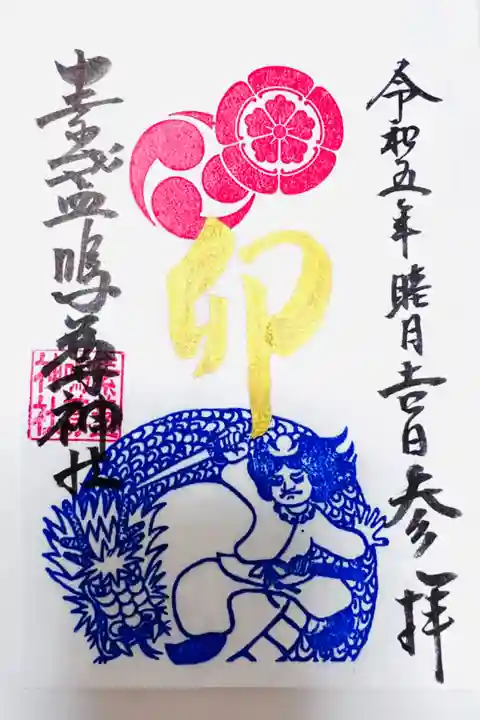 令和五年睦月吉日参拝
卯
素盞嗚尊神社